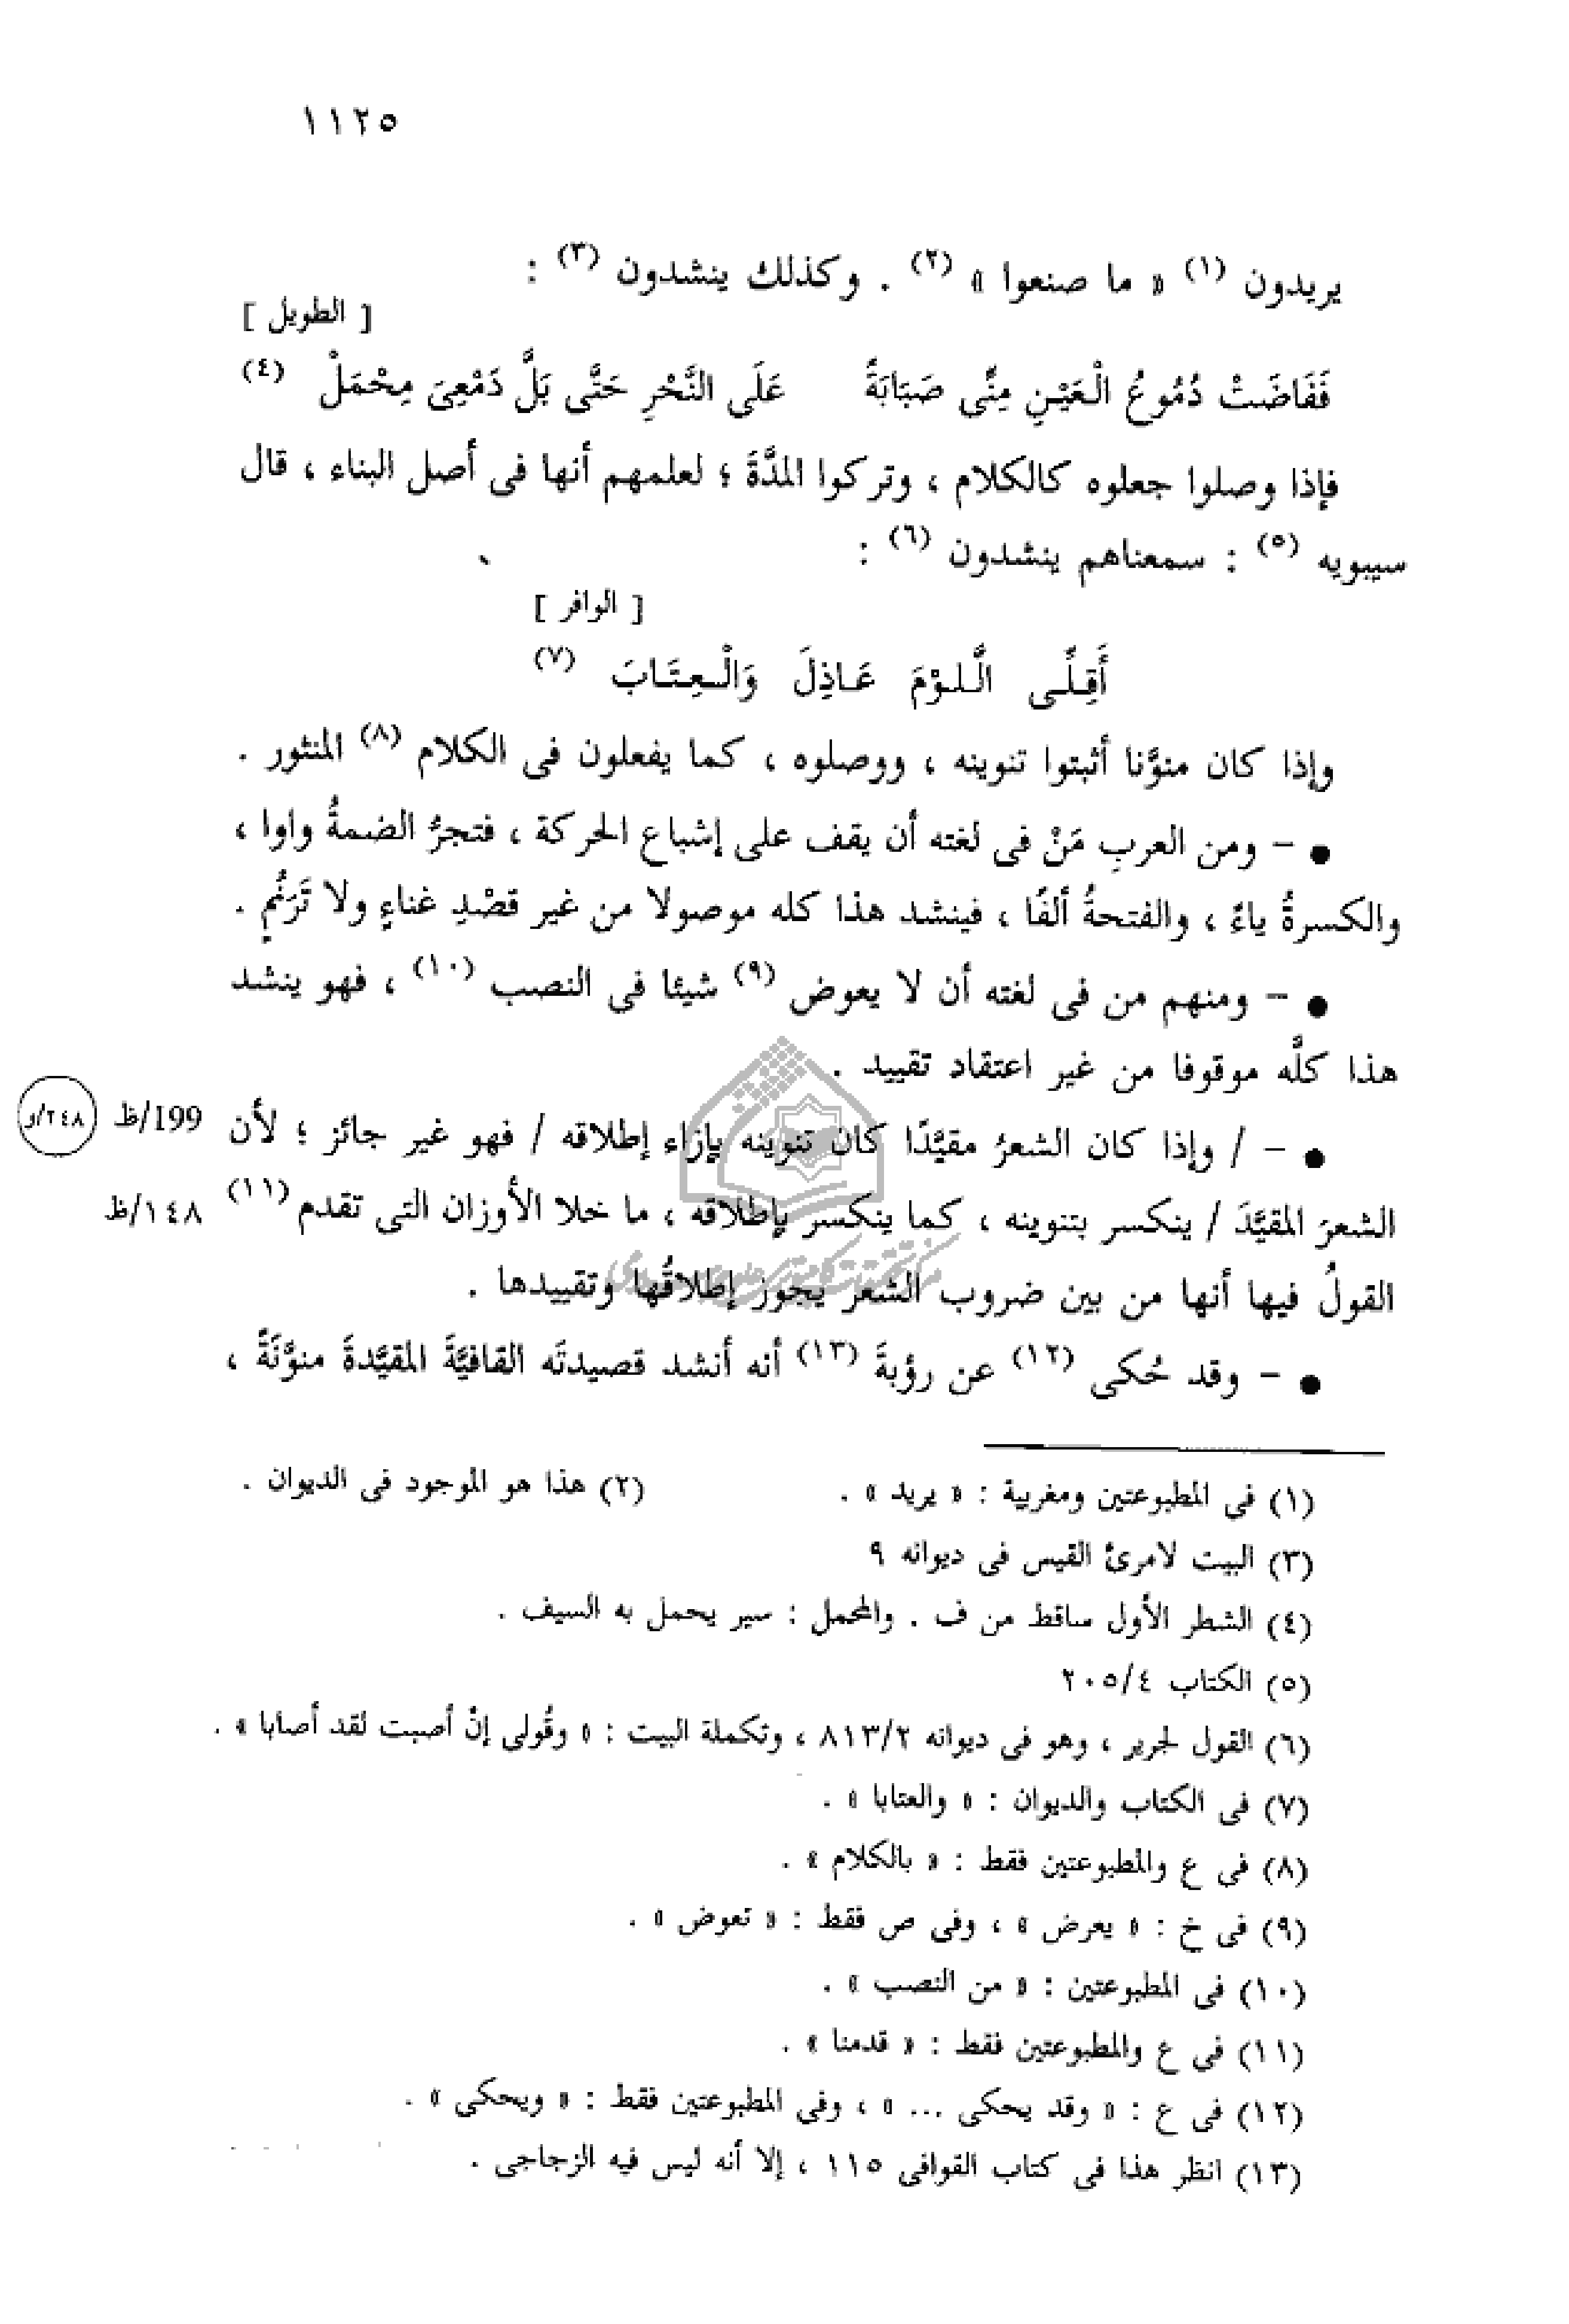 ١١٢٥
يريدون (١) « ما صنعوا » (٢) . وكذلك ينشدون (٣) :
[ الطويل ]
فَفَاضَتْ دُمُوعُ الْعَيْنِ مِنِّى صَبَابَةً عَلَى النَّحْرِ حَتَّى بَلَّ دَمْعِىَ مِحْمَلْ (٤)
فإذا وصلوا جعلوه كالكلام ، وتركوا المدَّةَ ؛ لعلمهم أنها فى أصل البناء ، قال
سيبويه (٥) : سمعناهم ينشدون (٦) :
[ الوافر ]
أَقِلِّى الَّلوْمَ عَاذِلَ وَالْعِتَابَ (٧)
وإذا كان منوَّنا أثبتوا تنوينه ، ووصلوه ، كما يفعلون فى الكلام (٨) المنثور .
● – ومن العربِ مَنْ فى لغته أن يقف على إشباع الحركة ، فتجرُّ الضمةُ واوا ،
والكسرةُ ياءً ، والفتحةُ ألفًا ، فينشد هذا كله موصولا من غير قصْدِ غناءٍ ولا تَرَنُّمٍ .
● – ومنهم من فى لغته أن لا يعوض (٩) شيئا فى النصب (١٠) ، فهو ينشد
هذا كلَّه موقوفا من غير اعتقاد تقييد .
● – / وإذا كان الشعرُ مقيَّدًا كان تنوينه بإزاء إطلاقه / فهو غير جائز ؛ لأن 199/ظ ٢٤٨/و
الشعرَ المقيَّدَ / ينكسر بتنوينه ، كما ينكسر بإطلاقه ، ما خلا الأوزان التى تقدم (١١) ١٤٨/ظ
القولُ فيها أنها من بين ضروب الشعر يجوز إطلاقُها وتقييدها .
● – وقد حُكى (١٢) عن رؤبةَ (١٣) أنه أنشد قصيدتَه القافيَّةَ المقيَّدةَ منوَّنَةً ،
(١) فى المطبوعتين ومغربية : « يريد » . (٢) هذا هو الموجود فى الديوان .
(٣) البيت لامرئ القيس فى ديوانه ٩
(٤) الشطر الأول ساقط من ف . والمحمل : سير يحمل به السيف .
(٥) الكتاب ٢٠٥/٤
(٦) القول لجرير ، وهو فى ديوانه ٨١٣/٢ ، وتكملة البيت : « وقُولى إنْ أصبت لقد أصابا » .
(٧) فى الكتاب والديوان : « والعتابا » .
(٨) فى ع والمطبوعتين فقط : « بالكلام » .
(٩) فى خ : « يعرض » ، وفى ص فقط : « تعوض » .
(١٠) فى المطبوعتين : « من النصب » .
(١١) فى ع والمطبوعتين فقط : « قدمنا » .
(١٢) فى ع : « وقد يحكى ... » ، وفى المطبوعتين فقط : « ويحكى » .
(١٣) انظر هذا فى كتاب القوافى ١١٥ ، إلا أنه ليس فيه الزجاجى .